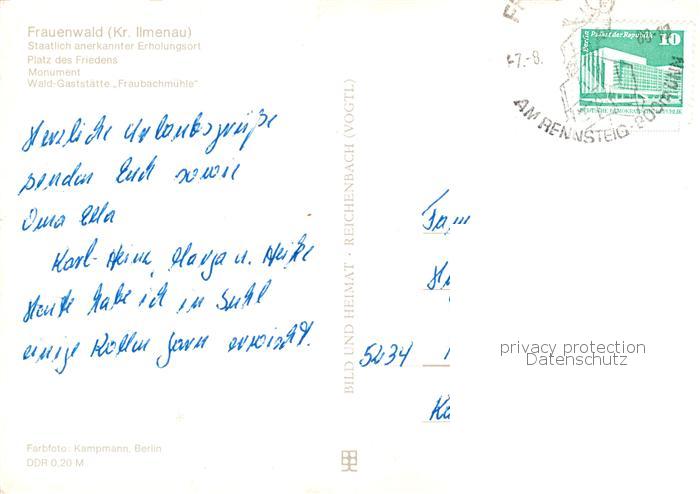 Frauenwald (Kr. Ilmenau)
Staatlich anerkannter Erholungsort
Platz des Friedens
Monument
Wald-Gaststätte „Fraubachmühle"
Herzliche Urlaubsgrüße
senden Euch sowie
Oma Ella
Karl-Heinz, Marga u. Heike
Heute habe ich in Suhl
einige Rollen Garn erwischt.
Farbfoto: Kampmann, Berlin
DDR 0,20 M
BILD UND HEIMAT · REICHENBACH (VOGTL)
-7.-8.
AM RENNSTEIG
Berlin Palast der Republik
10
Fam
5234
privacy protection
Datenschutz